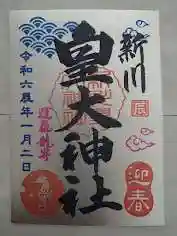 新川
皇大神社
令和六辰年一月二日
辰
迎春